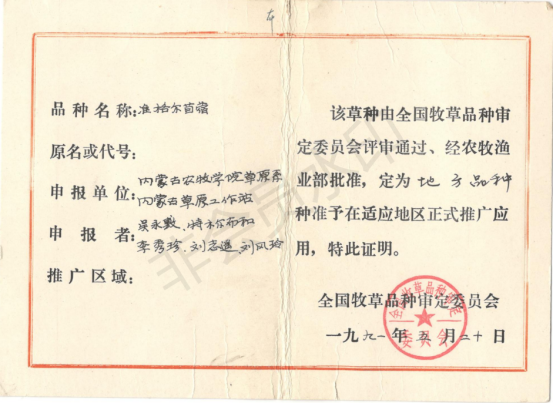 品种名称:准格尔苜蓿
原名或代号:
申报单位:内蒙古农牧学院草原系
内蒙古草原工作站
申报者:吴永敷、特木尔布和
李秀珍、刘 刘凤玲
推广区域:
该草种由全国牧草品种审
定委员会评审通过、经农牧渔
业部批准，定为地方品种
种准予在适应地区正式推广应
用，特此证明。
全国牧草品种审定委员会
一九九一年五月二十日
全国牧草品种审定
委员会
非会员水印